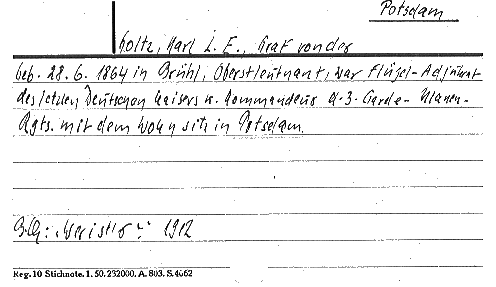 Potsdam
Holtz, Karl L. E., Graf von der
geb. 28. 6. 1864 in Brühl, Oberstleutnant, war Flügel-Adjutant
des letzten Deutschen Kaisers u. Kommandeur d. 3. Garde-Ulanen-
Rgts. mit dem Wohnsitz in Potsdam.
1912
Reg. 10 Stichnote. 1. 50. 232000. A. 803. S. 4062